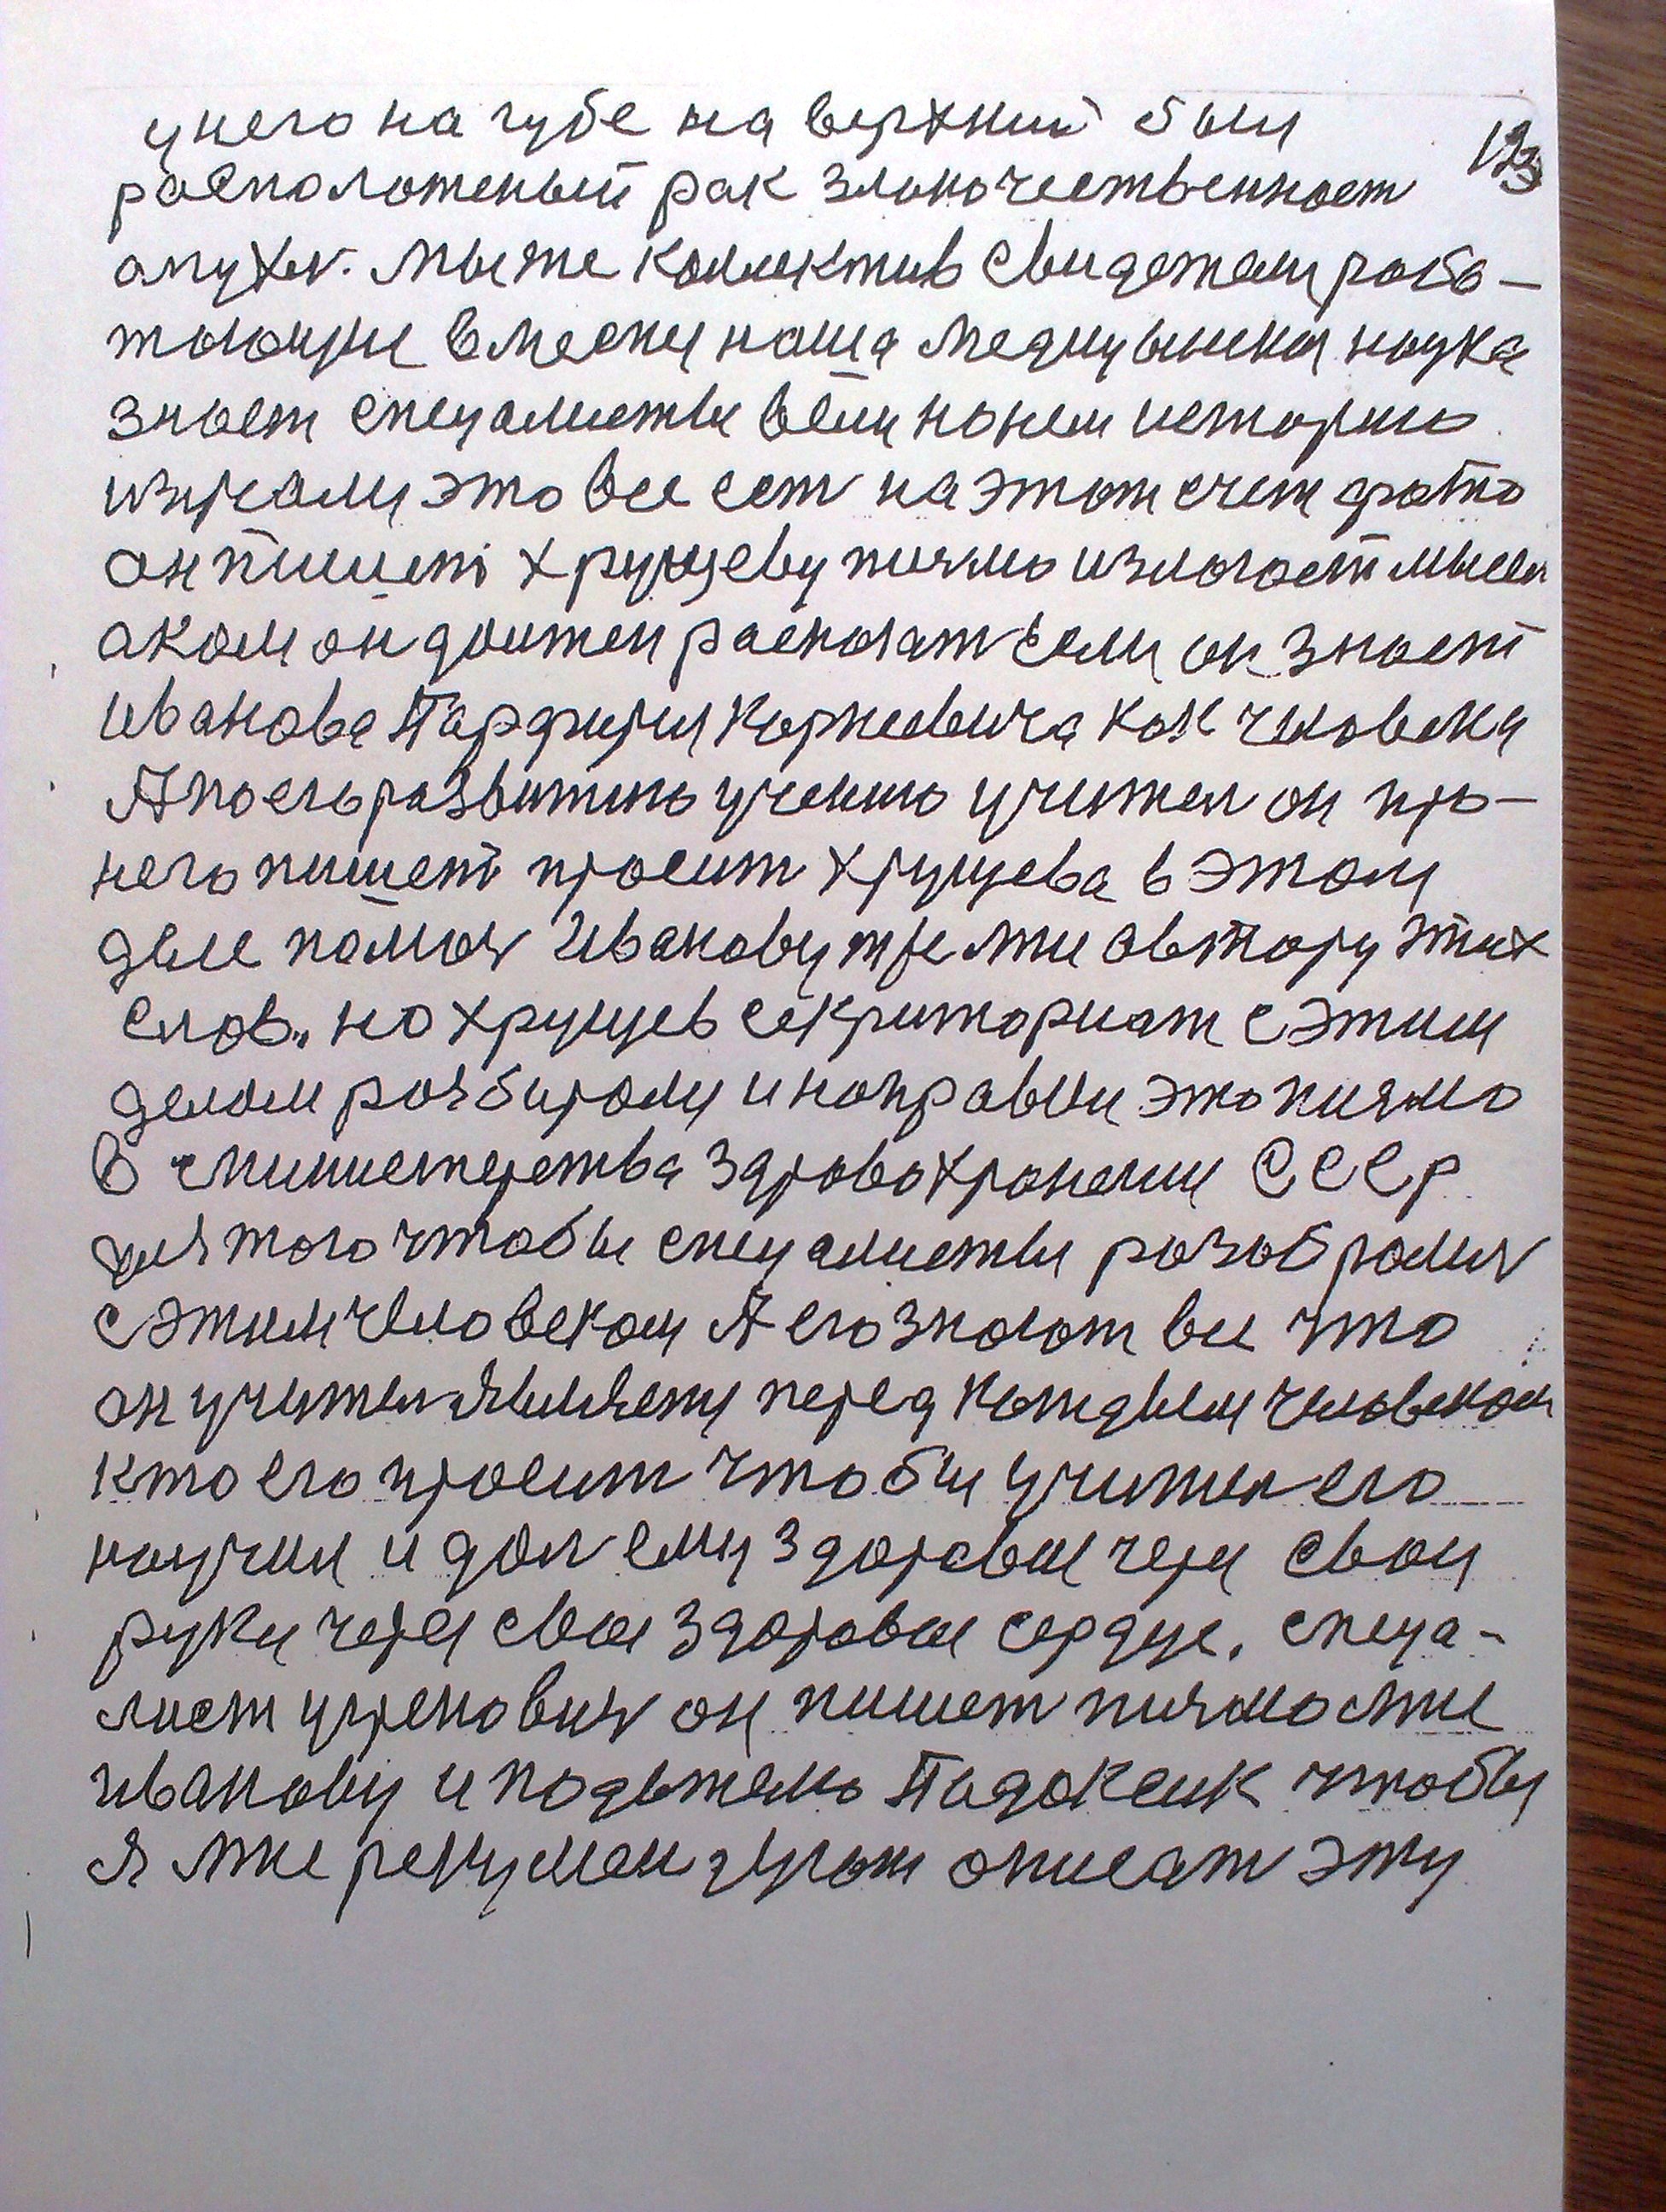 у него на губе на верхний были
123
расположеный рак злокочественноет
опухол. Мы же коллектив свидетели рабо-
тающие вмести наша медицынская наука
знает специалисты вели нанем историю
изучали это все ест на этот счет фото
он пишет Хрущеву письмо излогает мысел
аком он должен расказат если он знает
Иванова Парфирия Корнеевича как человека
А по его развитию учению учител он про-
него пишет просит Хрущева в этом
деле помоч Иванову мне автору этих
слов. но Хрущев секриториат с этим
делом розбирали и направили это письмо
В министерства здровохронении СССР
для того чтобы специалисты розобролис
с этим человеком А его знают все что
он учител являетя перед каждым человеком
кто его просит чтобы учител его
научил и дал ему здоровие через свои
руки через свое здоровое сердце. специа-
лист он пишет письмо мне
Иванову и чтобы
я мне описат эту